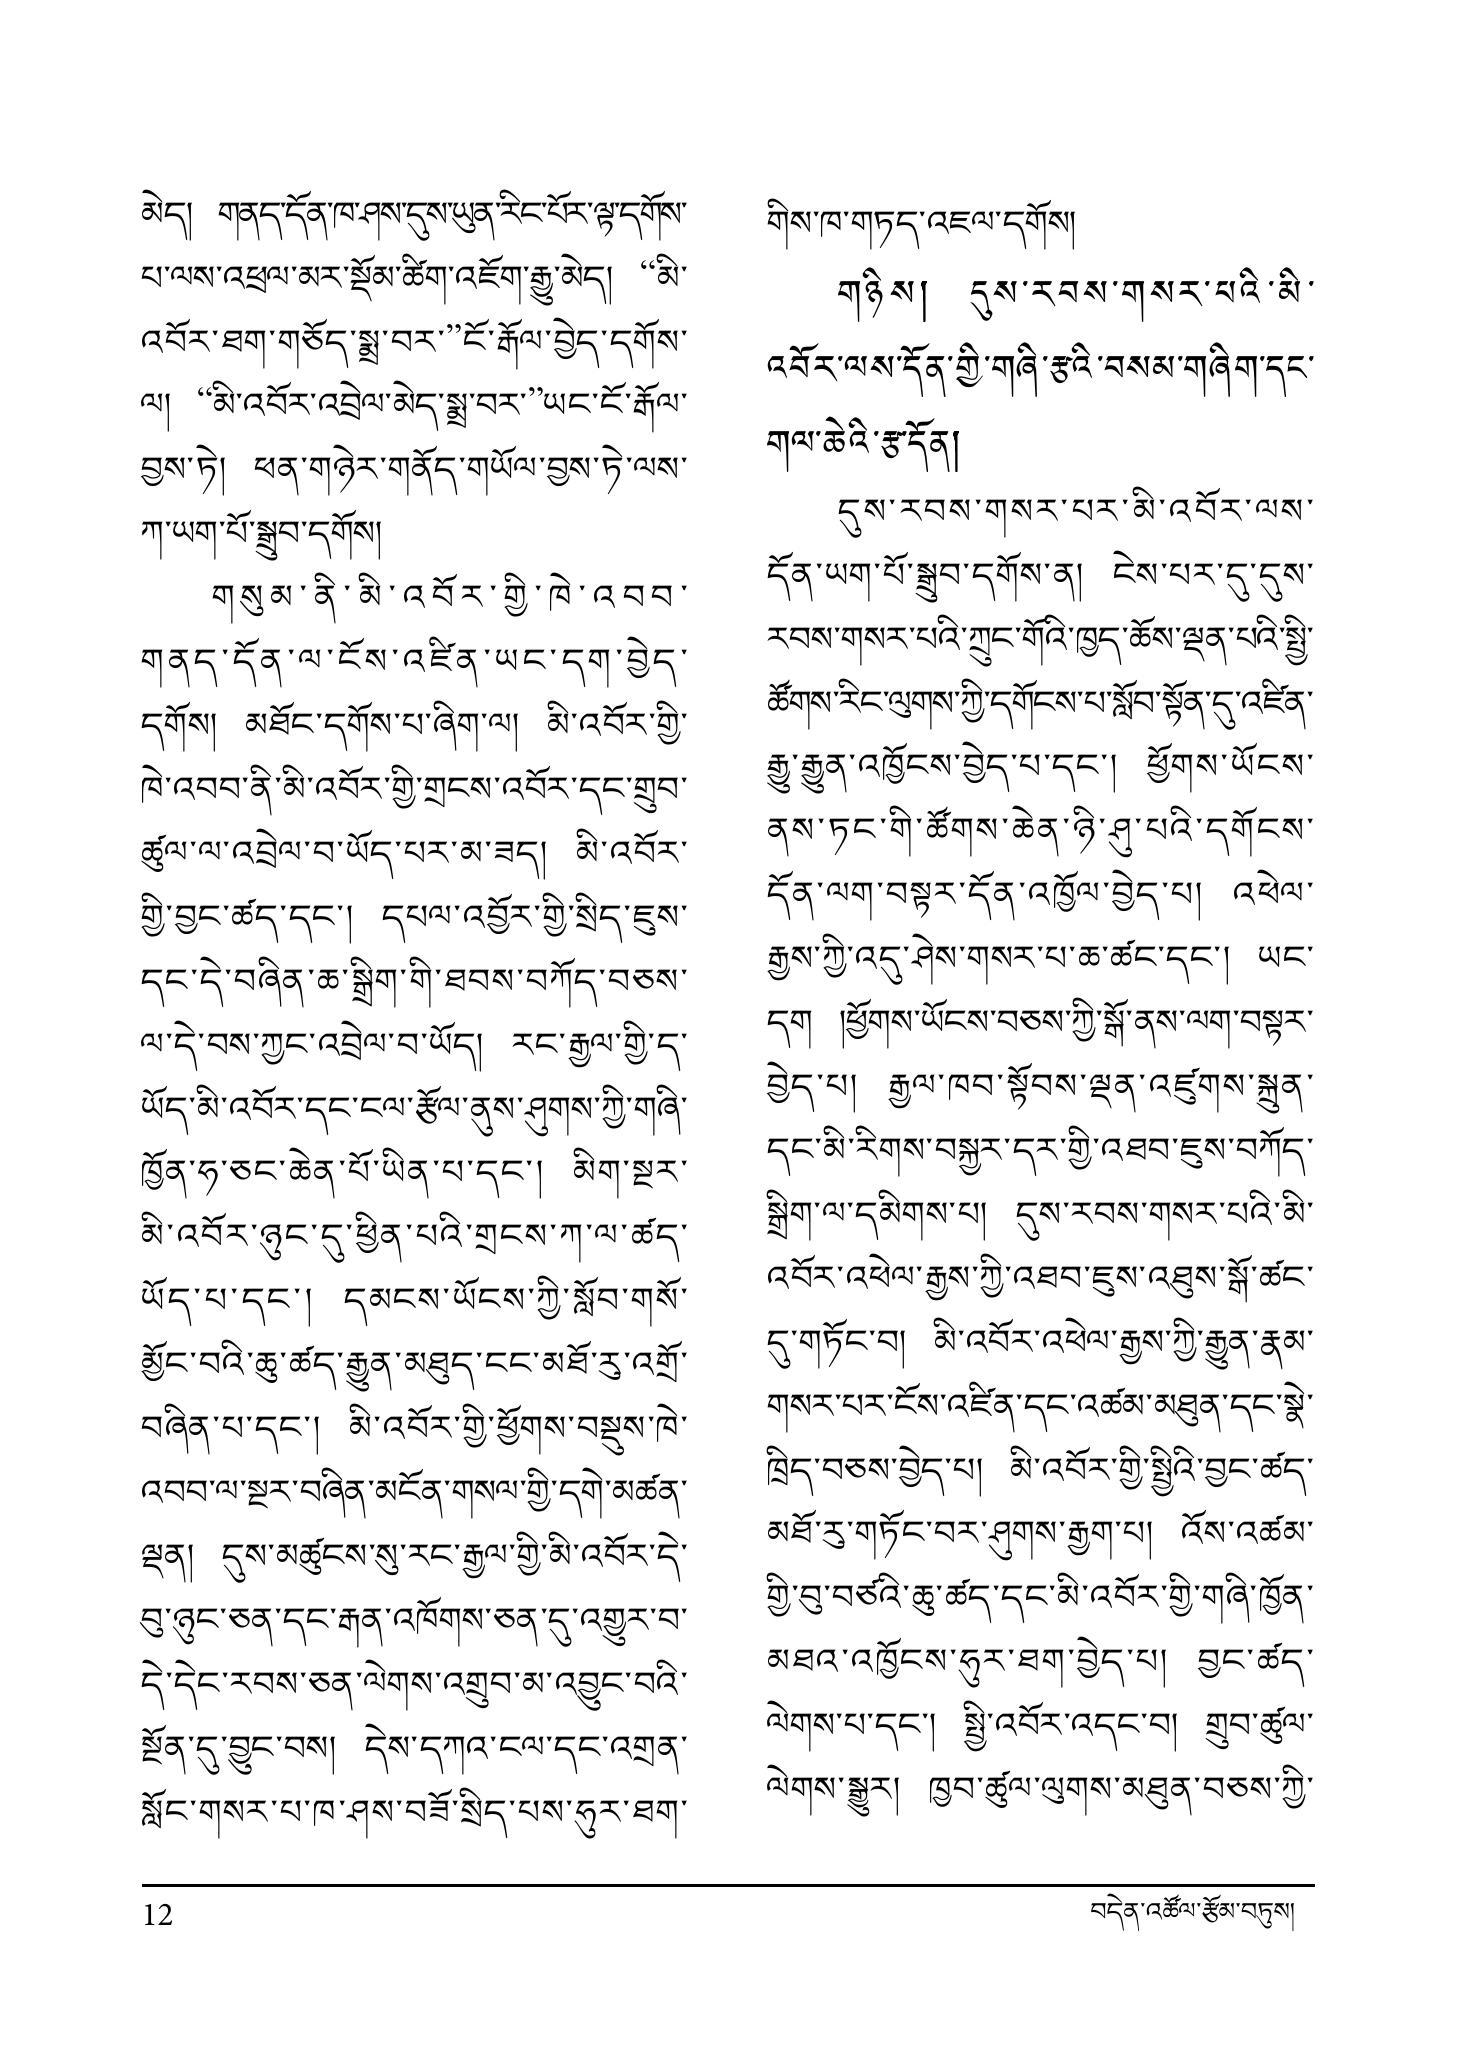 མེད།  གནད་དོན་ཁ་ཤས་དུས་ཡུན་རིང་པོར་ལྟ་དགོས་
པ་ལས་འཕྲལ་མར་སྡོམ་ཚིག་འཇོག་རྒྱུ་མེད།  “མི་
འབོར་ཐག་གཅོད་སྨྲ་བར་”ངོ་རྒོལ་བྱེད་དགོས་
ལ།  “མི་འབོར་འབྲེལ་མེད་སྨྲ་བར་”ཡང་ངོ་རྒོལ་
བྱས་ཏེ།  ཕན་གཉེར་གནོད་གཡོལ་བྱས་ཏེ་ལས་
ཀ་ཡག་པོ་སྒྲུབ་དགོས།
གསུམ་ནི་མི་འབོར་གྱི་ཁེ་འབབ་
གནད་དོན་ལ་ངོས་འཛིན་ཡང་དག་བྱེད་
དགོས།  མཐོང་དགོས་པ་ཞིག་ལ།  མི་འབོར་གྱི་
ཁེ་འབབ་ནི་མི་འབོར་གྱི་གྲངས་འབོར་དང་གྲུབ་
ཚུལ་ལ་འབྲེལ་བ་ཡོད་པར་མ་ཟད།  མི་འབོར་
གྱི་བྱང་ཚད་དང་།  དཔལ་འབྱོར་གྱི་སྲིད་ཇུས་
དང་དེ་བཞིན་ཆ་སྒྲིག་གི་ཐབས་བཀོད་བཅས་
ལ་དེ་བས་ཀྱང་འབྲེལ་བ་ཡོད།  རང་རྒྱལ་གྱི་ད་
ཡོད་མི་འབོར་དང་ངལ་རྩོལ་ནུས་ཤུགས་ཀྱི་གཞི་
ཁྱོན་ཧ་ཅང་ཆེན་པོ་ཡིན་པ་དང་།  མིག་སྔར་
མི་འབོར་ཉུང་དུ་ཕྱིན་པའི་གྲངས་ཀ་ལ་ཚད་
ཡོད་པ་དང་།  དམངས་ཡོངས་ཀྱི་སློབ་གསོ་
མྱོང་བའི་ཆུ་ཚད་རྒྱུན་མཐུད་ངང་མཐོ་རུ་འགྲོ་
བཞིན་པ་དང་།  མི་འབོར་གྱི་ཕྱོགས་བསྡུས་ཁེ་
འབབ་ལ་སྔར་བཞིན་མངོན་གསལ་གྱི་དགེ་མཚན་
ལྡན།  དུས་མཚུངས་སུ་རང་རྒྱལ་གྱི་མི་འབོར་དེ་
བུ་ཉུང་ཅན་དང་རྒན་འཁོགས་ཅན་དུ་འགྱུར་བ་
དེ་དེང་རབས་ཅན་ལེགས་འགྲུབ་མ་འབྱུང་བའི་
སྔོན་དུ་བྱུང་བས།  དེས་དཀའ་ངལ་དང་འགྲན་
སློང་གསར་པ་ཁ་ཤས་བཟོ་སྲིད་པས་ཧུར་ཐག་
གིས་ཁ་གཏད་འཇལ་དགོས།
གཉིས།  དུས་རབས་གསར་པའི་མི་
འབོར་ལས་དོན་གྱི་གཞི་རྩའི་བསམ་གཞིག་དང་
གལ་ཆེའི་རྩ་དོན།
དུས་རབས་གསར་པར་མི་འབོར་ལས་
དོན་ཡག་པོ་སྒྲུབ་དགོས་ན།  ངེས་པར་དུ་དུས་
རབས་གསར་པའི་ཀྲུང་གོའི་ཁྱད་ཆོས་ལྡན་པའི་སྤྱི་
ཚོགས་རིང་ལུགས་ཀྱི་དགོངས་པ་སློབ་སྟོན་དུ་འཛིན་
རྒྱུ་རྒྱུན་འཁྱོངས་བྱེད་པ་དང་།  ཕྱོགས་ཡོངས་
ནས་ཏང་གི་ཚོགས་ཆེན་ཉི་ཤུ་པའི་དགོངས་
དོན་ལག་བསྟར་དོན་འཁྱོལ་བྱེད་པ།  འཕེལ་
རྒྱས་ཀྱི་འདུ་ཤེས་གསར་པ་ཆ་ཚང་དང་།  ཡང་
དག །ཕྱོགས་ཡོངས་བཅས་ཀྱི་སྒོ་ནས་ལག་བསྟར་
བྱེད་པ།  རྒྱལ་ཁབ་སྟོབས་ལྡན་འཛུགས་སྐྲུན་
དང་མི་རིགས་བསྐྱར་དར་གྱི་འཐབ་ཇུས་བཀོད་
སྒྲིག་ལ་དམིགས་པ།  དུས་རབས་གསར་པའི་མི་
འབོར་འཕེལ་རྒྱས་ཀྱི་འཐབ་ཇུས་འཐུས་སྒོ་ཚང་
དུ་གཏོང་བ།  མི་འབོར་འཕེལ་རྒྱས་ཀྱི་རྒྱུན་རྣམ་
གསར་པར་ངོས་འཛིན་དང་འཚམ་མཐུན་དང་སྣེ་
ཁྲིད་བཅས་བྱེད་པ།  མི་འབོར་གྱི་སྤྱིའི་བྱང་ཚད་
མཐོ་རུ་གཏོང་བར་ཤུགས་རྒྱག་པ།  འོས་འཚམ་
གྱི་བུ་བཙའི་ཆུ་ཚད་དང་མི་འབོར་གྱི་གཞི་ཁྱོན་
མཐའ་འཁྱོངས་ཧུར་ཐག་བྱེད་པ།  བྱང་ཚད་
ལེགས་པ་དང་།  སྤྱི་འབོར་འདང་བ།  གྲུབ་ཚུལ་
ལེགས་སྒྱུར།  ཁྱབ་ཚུལ་ལུགས་མཐུན་བཅས་ཀྱི་
12
བདེན་འཚོལ་རྩོམ་བཏུས།